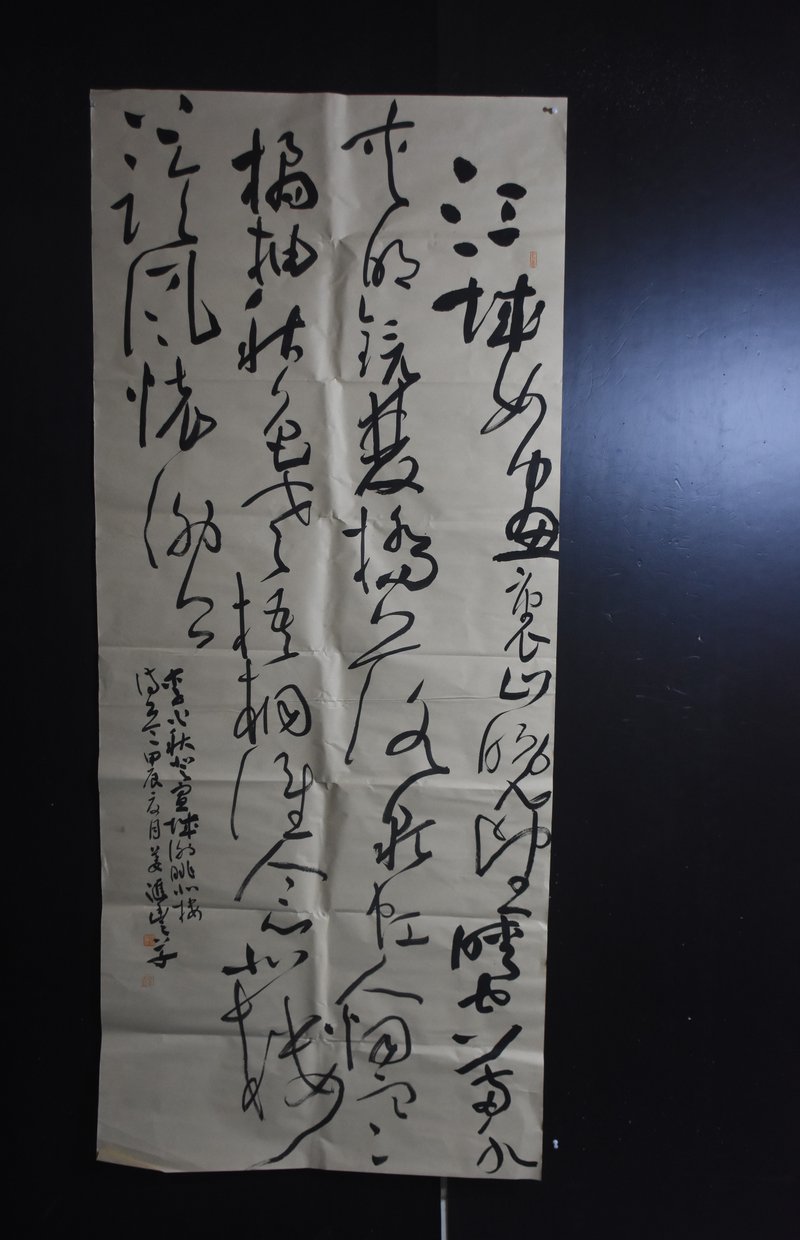 江城如畫裏山晚望晴空兩水
夾明鏡雙橋落彩虹人烟寒
橘柚秋色老梧桐誰念北樓
上臨風懷謝公
李白秋登宣城謝朓北樓
詩 甲辰 月姜